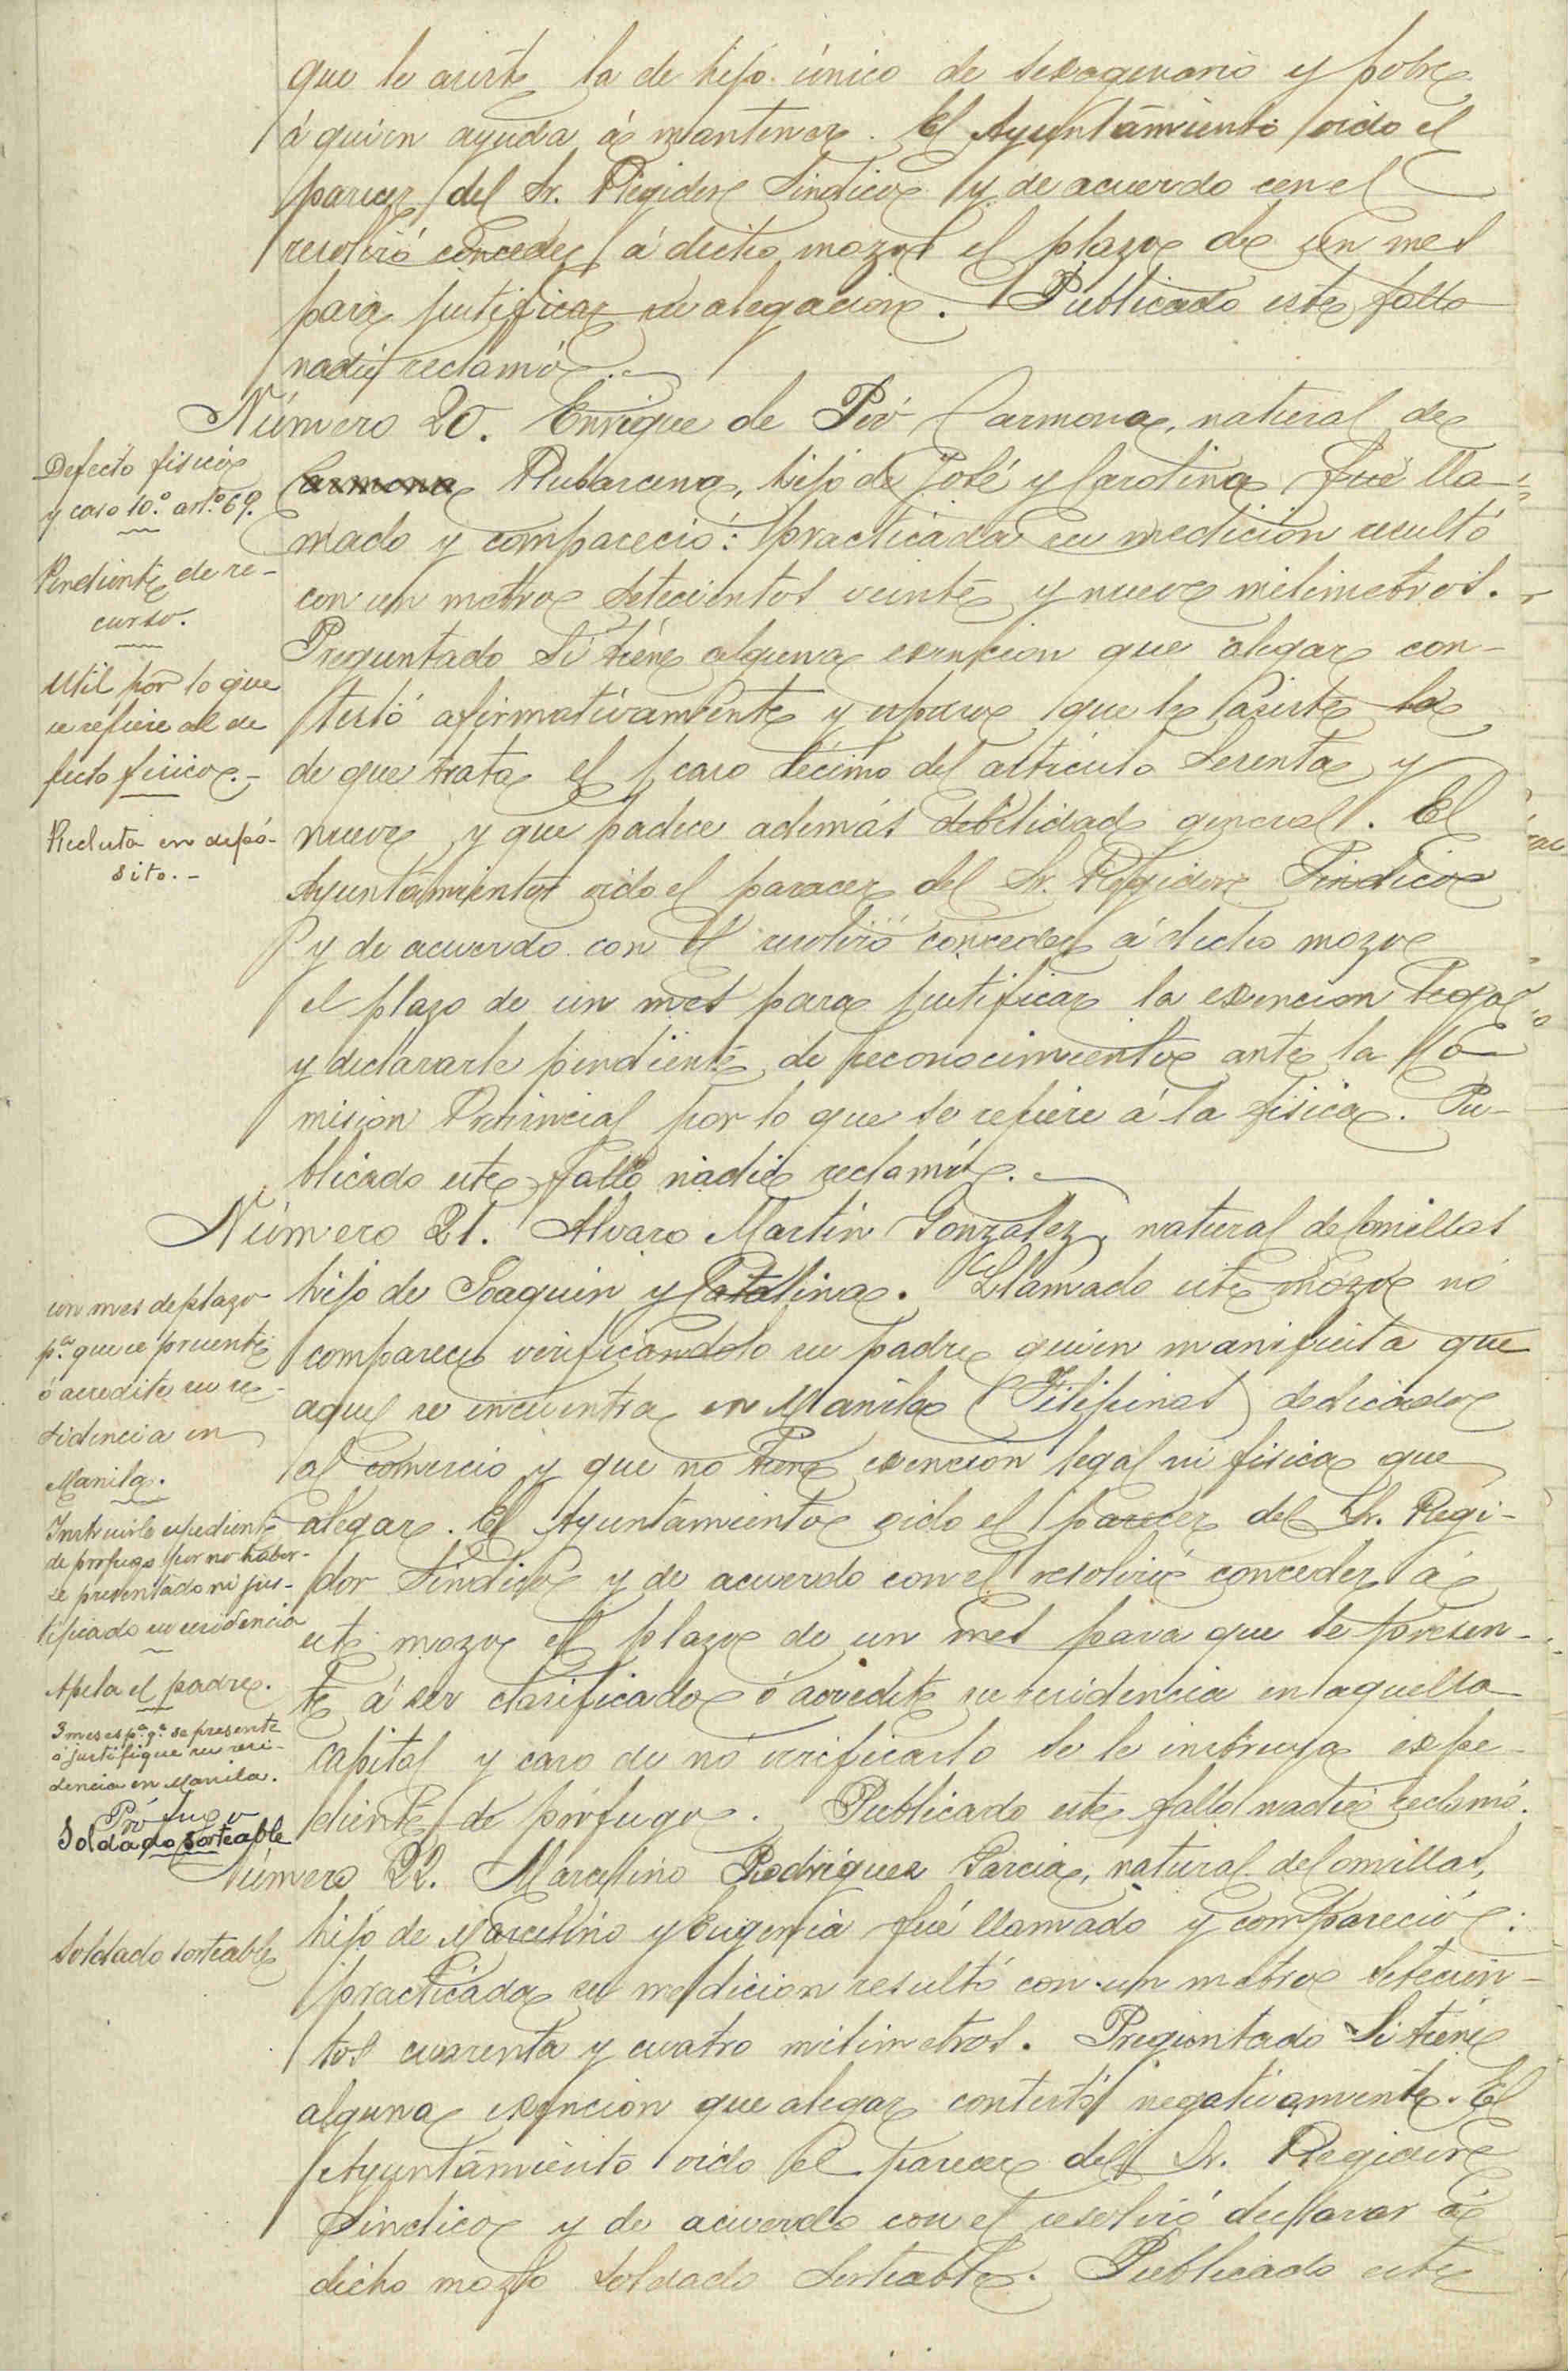 que le asiste la de hijo único de sexagenario y pobre
á quien ayuda á mantener. El Ayuntamiento oido el
parecer del Sr. Regidor Sindico y de acuerdo con el
resolvió conceder á dicho mozo el plazo de un mes
para justificar su alegacion. Publicado este fallo
nadie reclamó.
Número 20. Enrique de Pió Carmona, natural de
Carmona Rubarcena, hijo de José y Carolina fué lla-
mado y compareció: practicada su medición resultó
con un metro setecientos veinte y nueve milimetros.
Preguntado si tiene alguna esencion que alegar con-
testó afirmativamente y espuso que le asiste la
de que trata el caso décimo del artículo sesenta y
nueve y que padece además debilidad general. El
Ayuntamiento oido el parecer del Sr. Regidor Sindico
y de acuerdo con el resolvió conceder á dicho mozo
el plazo de un mes para justificar la esencion legal
y declararle pendiente de reconocimiento ante la Co
mision Provincial por lo que se refiere á la fisica. Pu-
blicado este fallo nadie reclamó.
Defecto fisico
y caso 10.º art.º 69.
Pendiente de re-
curso.
Util por lo que
se refiere al de
fecto fisico.-
Recluta en depó-
sito.-
Número 21. Alvaro Martín Gonzalez, natural de Comillas
hijo de Joaquin y Catalina. Llamado este mozo no
comparece verificandolo su padre quien manifiesta que
aquel se encuentra en Manila (Filipinas) dedicado
al comercio y que no tiene esencion legal ni fisica que
alegar. El Ayuntamiento oido el parecer del Sr. Regi-
dor Sindico y de acuerdo con el resolvió conceder á
este mozo el plazo de un mes para que se presen-
te á ser clasificado ó acredite su residencia en aquella
Capital y caso de no verificarlo se le instruya espe-
diente de prófugo. Publicado este fallo nadie reclamó.
un mes de plazo
p.ª que se presente
ó acredite su re-
sidencia en
Manila.
Instruirle espediente
de profugo por no haber-
se presentado ni jus-
tificado su residencia
Apela el padre.
3 meses p.ª q.e se presente
ó justifique su resi-
dencia en Manila.
Prófugo
Soldado sorteable
Número 22. Marcelino Rodriguez Garcia, natural de Comillas,
hijo de Marcelino y Eugenia fué llamado y compareció:
practicada su medicion resultó con un metro setecien-
tos cuarenta y cuatro milimetros. Preguntado si tiene
alguna esencion que alegar contestó negativamente. El
Ayuntamiento oido el parecer del Sr. Regidor
Sindico y de acuerdo con el resolvió declarar á
dicho mozo soldado sorteable. Publicado este
Soldado sorteable